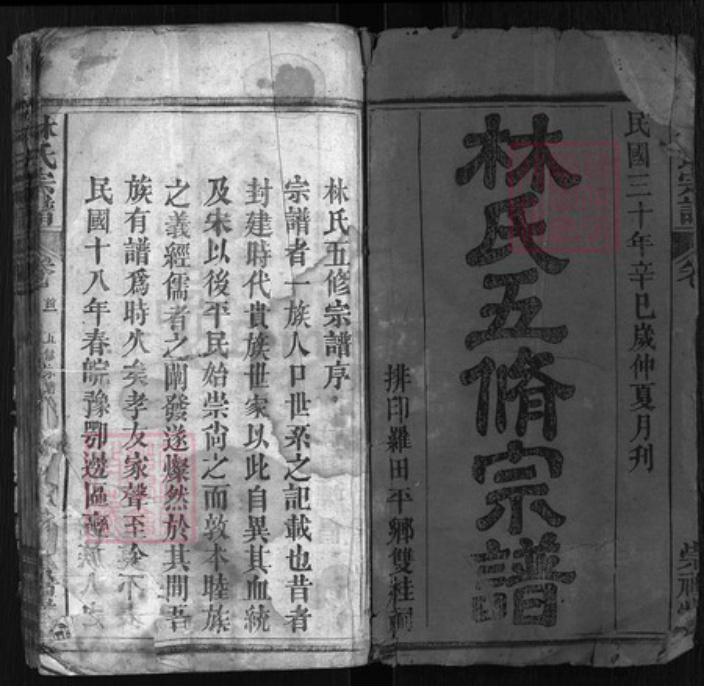 民國三十年辛巳歲仲夏月刊
林氏五脩宗譜
排印羅田平鄉雙桂祠
林氏五修宗譜序
宗譜者一族人口世系之記載也昔者
封建時代貴族世家以此自異其血統
及宋以後平民始崇尙之而敦本睦族
之義經儒者之闡發遂燦然於其間吾
族有譜爲時久矣孝友家聲至今不
民國十八年春皖豫鄂邊區
林氏宗譜
卷首